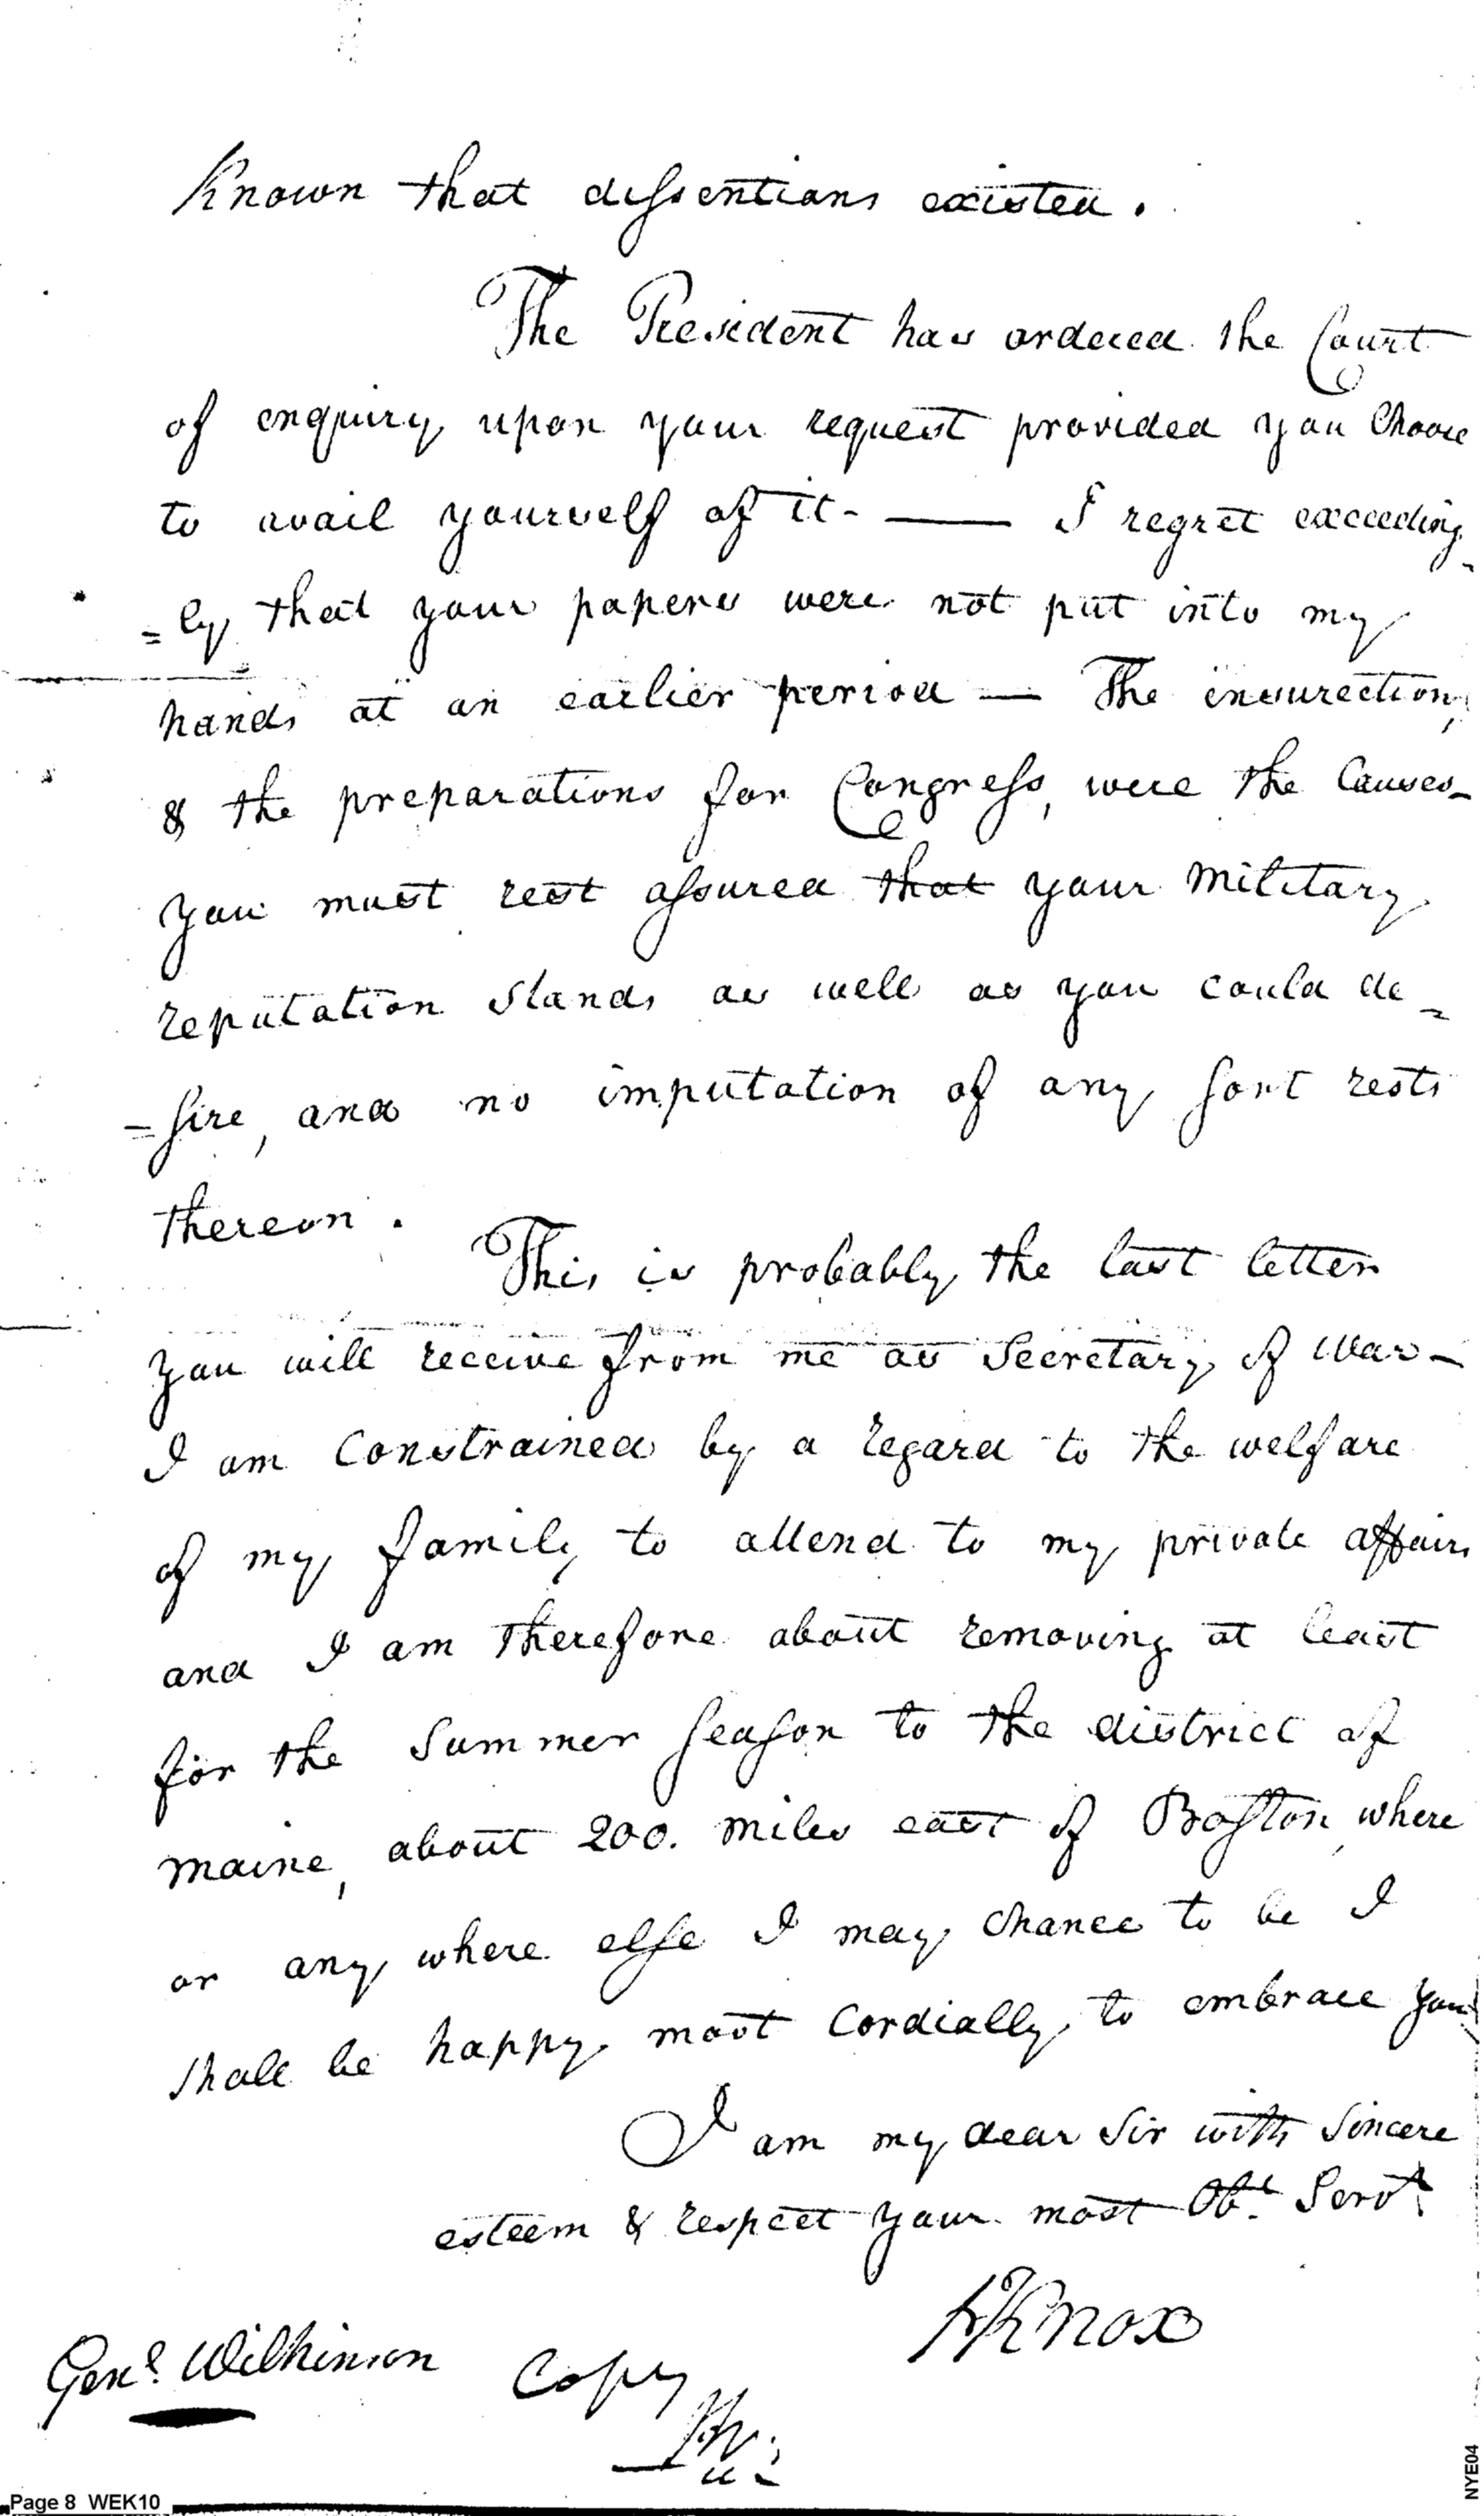 Known that dissentions existed.
The President has ordered the Court
of enquiry upon your request provided you Choose
to avail yourself of it- — I regret exceeding
=ly that your papers were not put into my
hands at an earlier period — The insurection,
& the preparations for Congress, were the Causes-
you must rest assured that your military
reputation Stands as well as you could de=
=sire, and no imputation of any sort rests
thereon.
This is probably the last letter
you will receive from me as Secretary of War-
I am Constrained by a regard to the welfare
of my family to attend to my private affairs
and I am therefore about removing at least
for the Summer season to the district of
maine, about 200. miles east of Boston, where
or any where else I may Chance to be I
shall be happy most Cordially to embrace you
I am my dear Sir with Sincere
esteem & respect your most Obt. Servt.
HKnox
Genl. Wilkinson Copy
Page 8 WEK10
NYE04